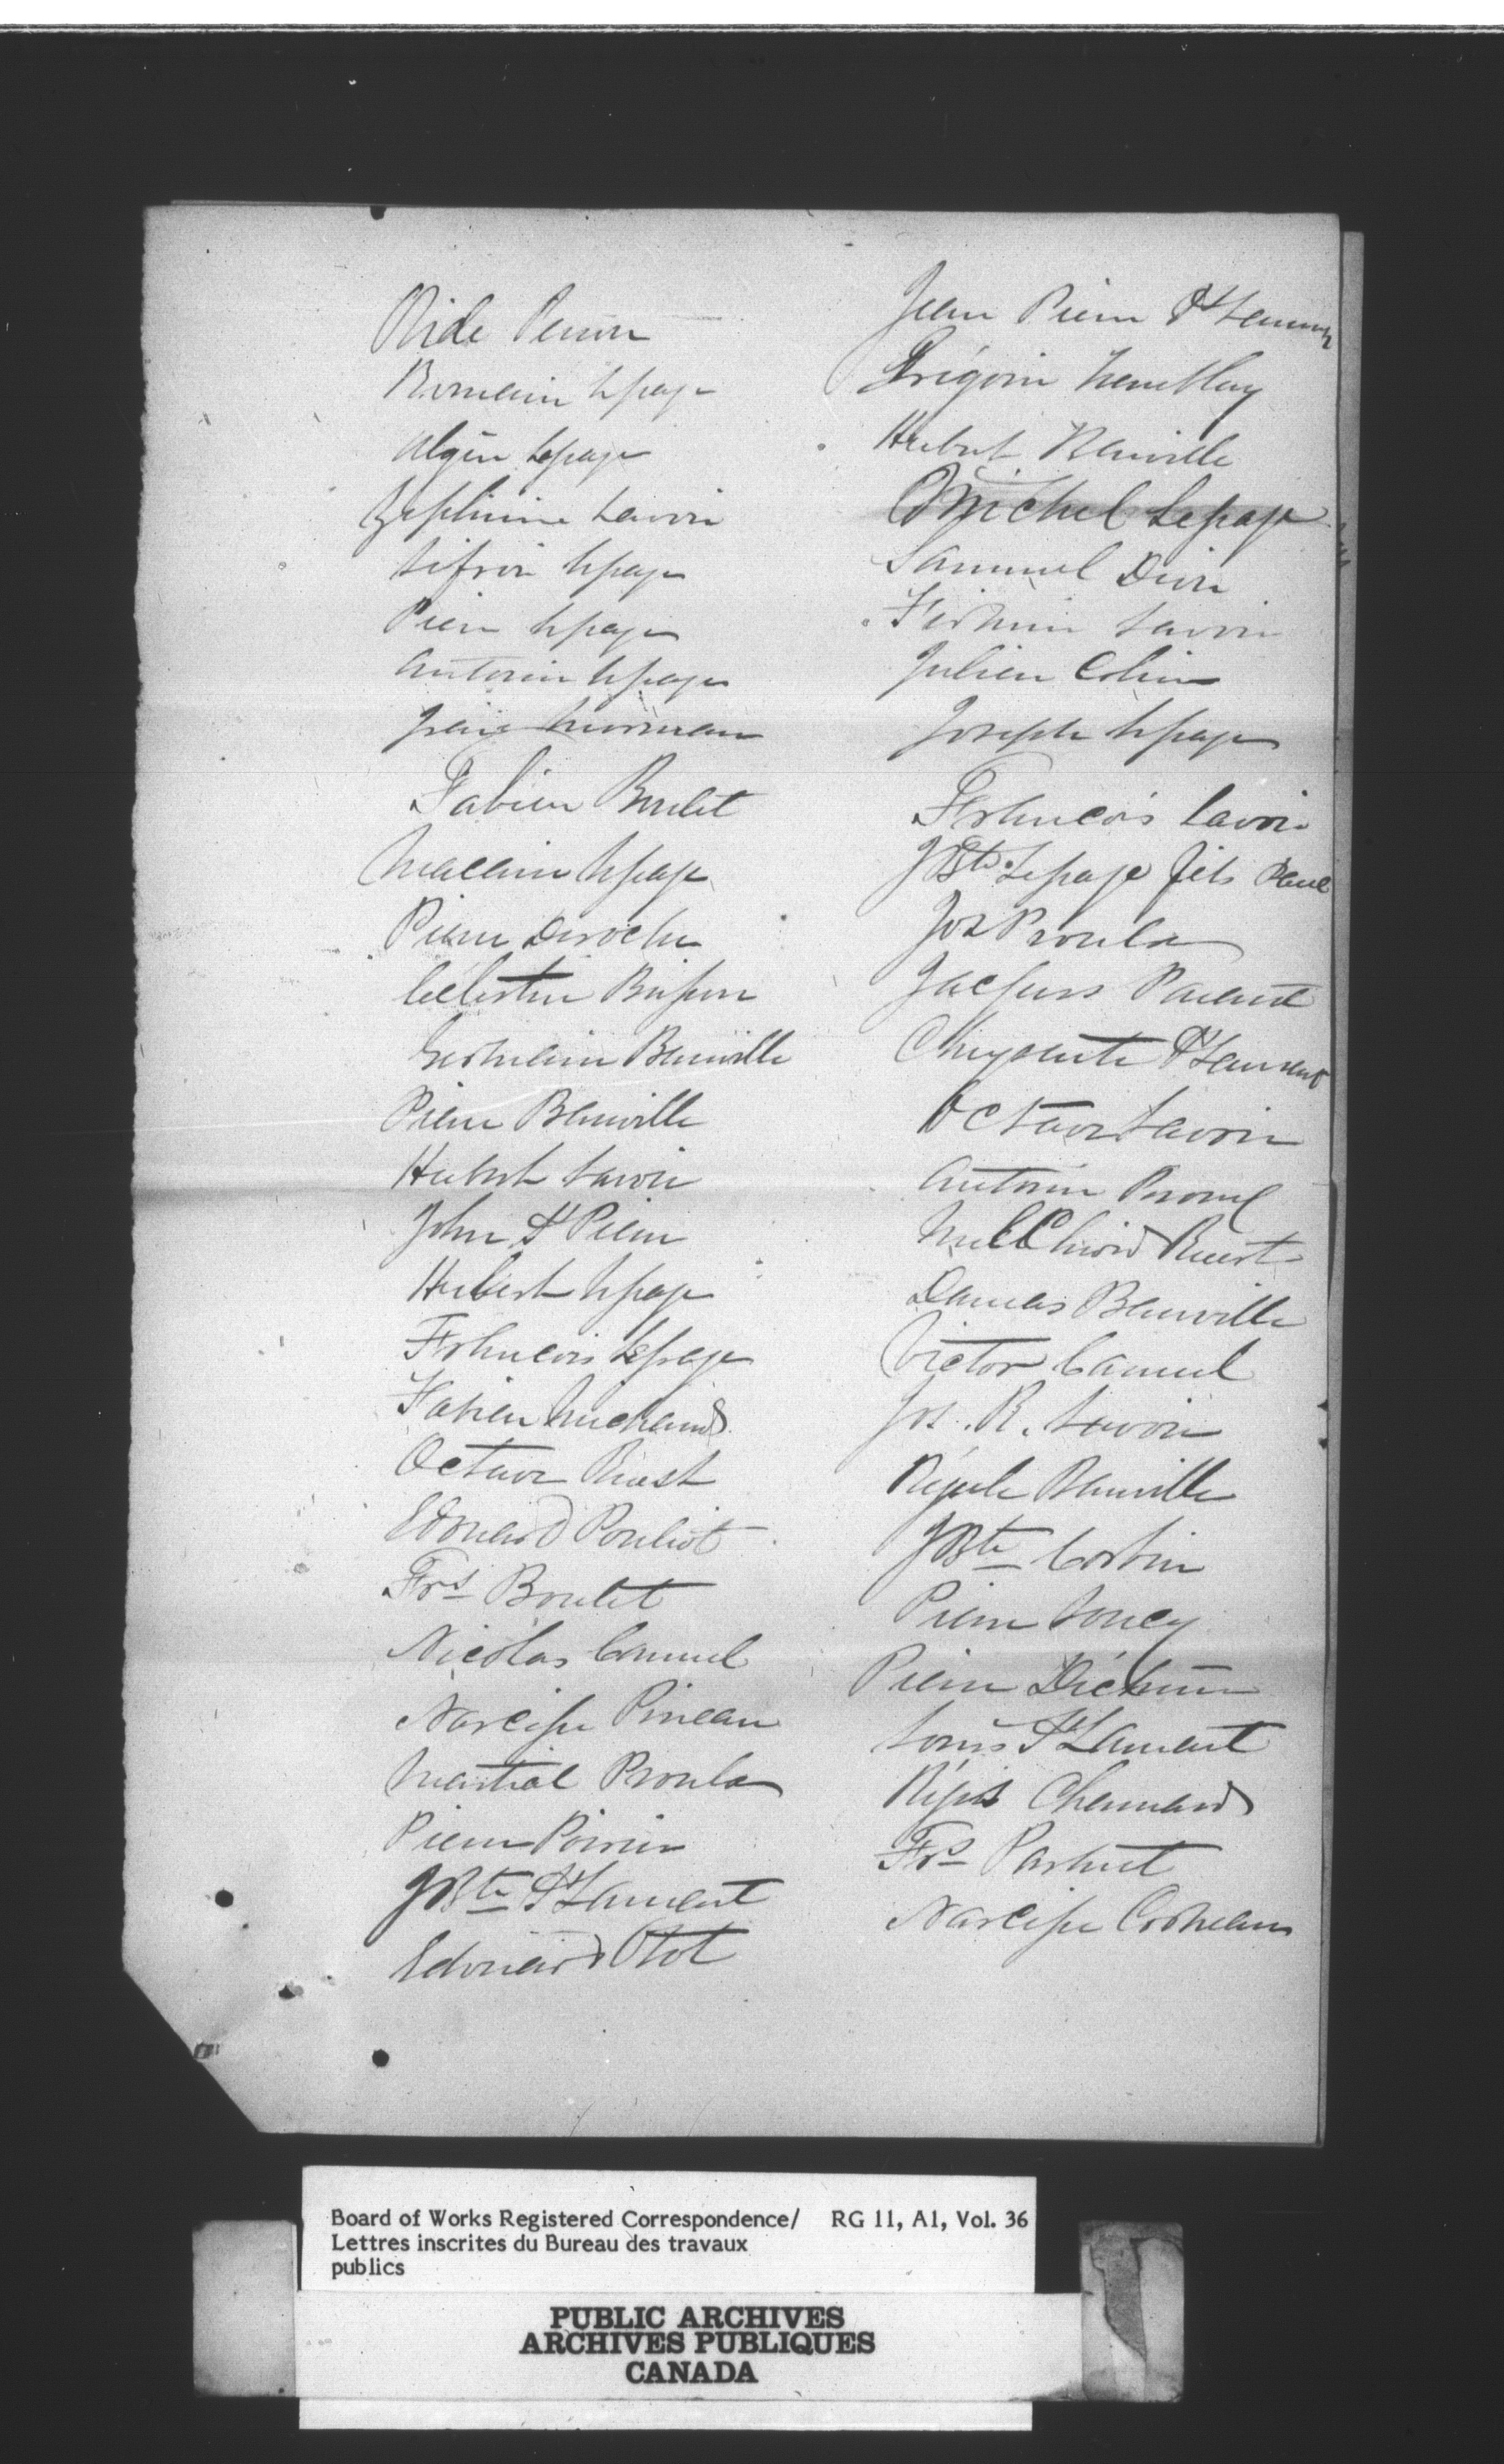 Ovide Perron
Romain Lepage
Algéu Lepage
Zephirine Lavoie
Sifroi Lepage
Pierre Lepage
Antoine Lepage
Morneau
Fabien Boulet
Macaire Lepage
Pierre Deroche
Célestin Brisson
Germain Banville
Pierre Banville
Hubert Lavoie
John St Pierre
Hubert Lepage
Francois Lepage
Fabien Michaud
Octave Ruest
Edouard Pouliot
Frs Boulet
Nicolas Canuel
Narcisse Pineau
Martial Proulx
Pierre Poirier
J Bte St Laurent
Edouard Otot
Jean Pierre St Laurent
Grégoire Tremblay
Hubert Banville
Michel Lepage
Sammuel Dion
Firmin Lavoie
Julien Colin
Joseph Lepage
Francois Lavoie
J Bte Lepage fils Paul
Jos Proulx
Jacques Parent
Chrysante St Laurent
Octave Lavoie
Antoine
Melchior Ruest
Damas Banville
Victor Canuel
Jos. R. Lavoie
Régule Banville
J Bte Fortin
Pierre Soucy
Pierre
Louis St Laurent
Régis Chennard
Frs Parent
Narcisse Corneau
Board of Works Registered Correspondence/ RG 11, A1, Vol. 36
Lettres inscrites du Bureau des travaux
publics
PUBLIC ARCHIVES
ARCHIVES PUBLIQUES
CANADA